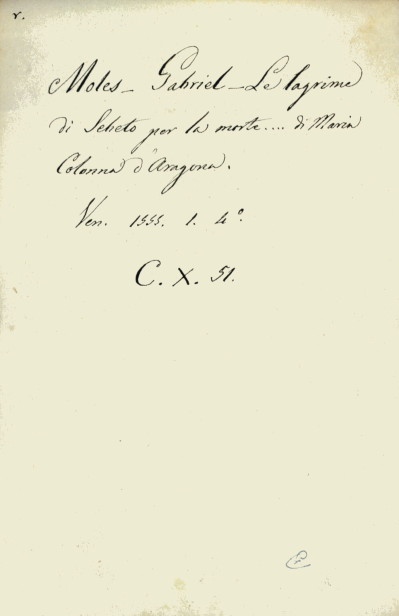 r.
Moles - Gabriel - Le lagrime
di Sebeto per la morte.... di Maria
Colonna d'Aragona.
Ven. 1555. 1. 4º.
C. X. 51.